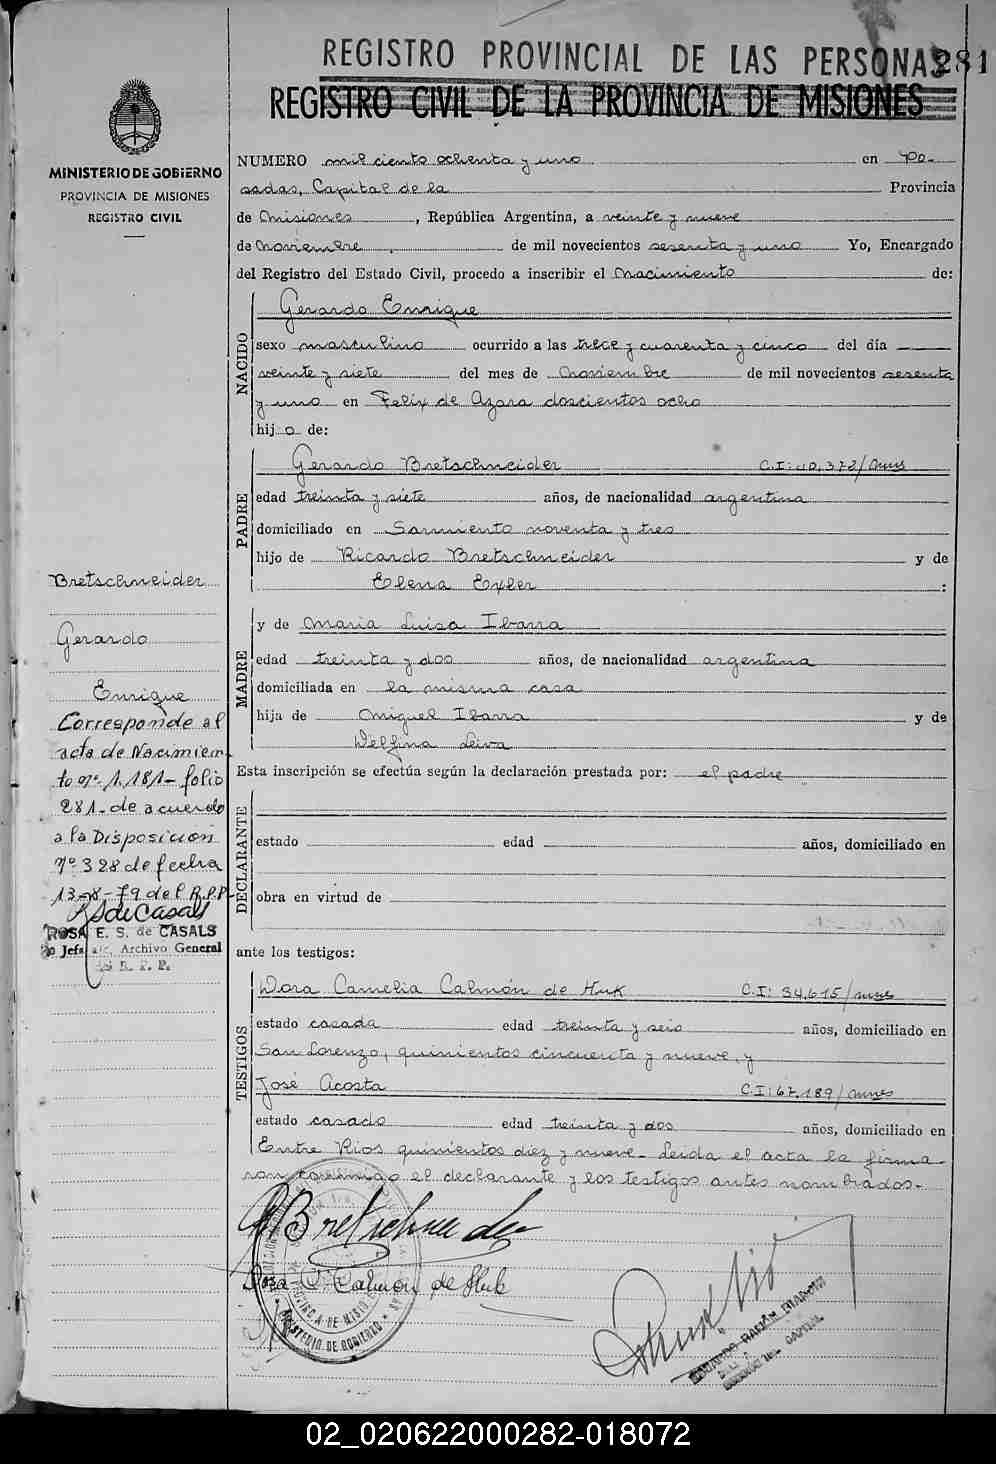 REGISTRO PROVINCIAL DE LAS PERSONAS
281
REGISTRO CIVIL DE LA PROVINCIA DE MISIONES
MINISTERIO DE GOBIERNO
PROVINCIA DE MISIONES
REGISTRO CIVIL
NUMERO mil ciento ochenta y uno en Po-
sadas, Capital de la Provincia
de Misiones, República Argentina, a veinte y nueve
de Noviembre de mil novecientos sesenta y uno Yo, Encargado
del Registro del Estado Civil, procedo a inscribir el Nacimiento de:
NACIDO
Gerardo Enrique
sexo masculino ocurrido a las trece y cuarenta y cinco del día
veinte y siete del mes de Noviembre de mil novecientos sesenta
y uno en Felix de Azara doscientos ocho
hijo de:
PADRE
Gerardo Bretschneider C.I: 40.372/mnes
edad treinta y siete años, de nacionalidad argentina
domiciliado en Sarmiento noventa y tres
hijo de Ricardo Bretschneider y de
Elena Exler :
MADRE
y de Maria Luisa Ibarra
edad treinta y dos años, de nacionalidad argentina
domiciliada en la misma casa
hija de Miguel Ibarra y de
Delfina Leiva
Esta inscripción se efectúa según la declaración prestada por: el padre
DECLARANTE
estado edad años, domiciliado en
obra en virtud de
ante los testigos:
TESTIGOS
Dora Camelia Calmón de Huk C.I: 34.615/mnes
estado casada edad treinta y seis años, domiciliado en
San Lorenzo, quinientos cincuenta y nueve, y
José Acosta C.I: 67.189/mnes
estado casado edad treinta y dos años, domiciliado en
Entre Rios quinientos diez y nueve.- Leida el acta la firma-
ron conmigo el declarante y los testigos antes nombrados.-
Bretschneider
Dora C. Calmón de Huk
MINISTERIO DE GOBIERNO
Bretschneider
Gerardo
Enrique
Corresponde al
acta de Nacimien-
to nº. 1.181- folio
281- de acuerdo
a la Disposición
Nº 328 de fecha
13-8-79 del R.P.P.
RSdeCasals
ROSA E. S. de CASALS
Jefa Archivo General
R. P. P.
02_020622000282-018072